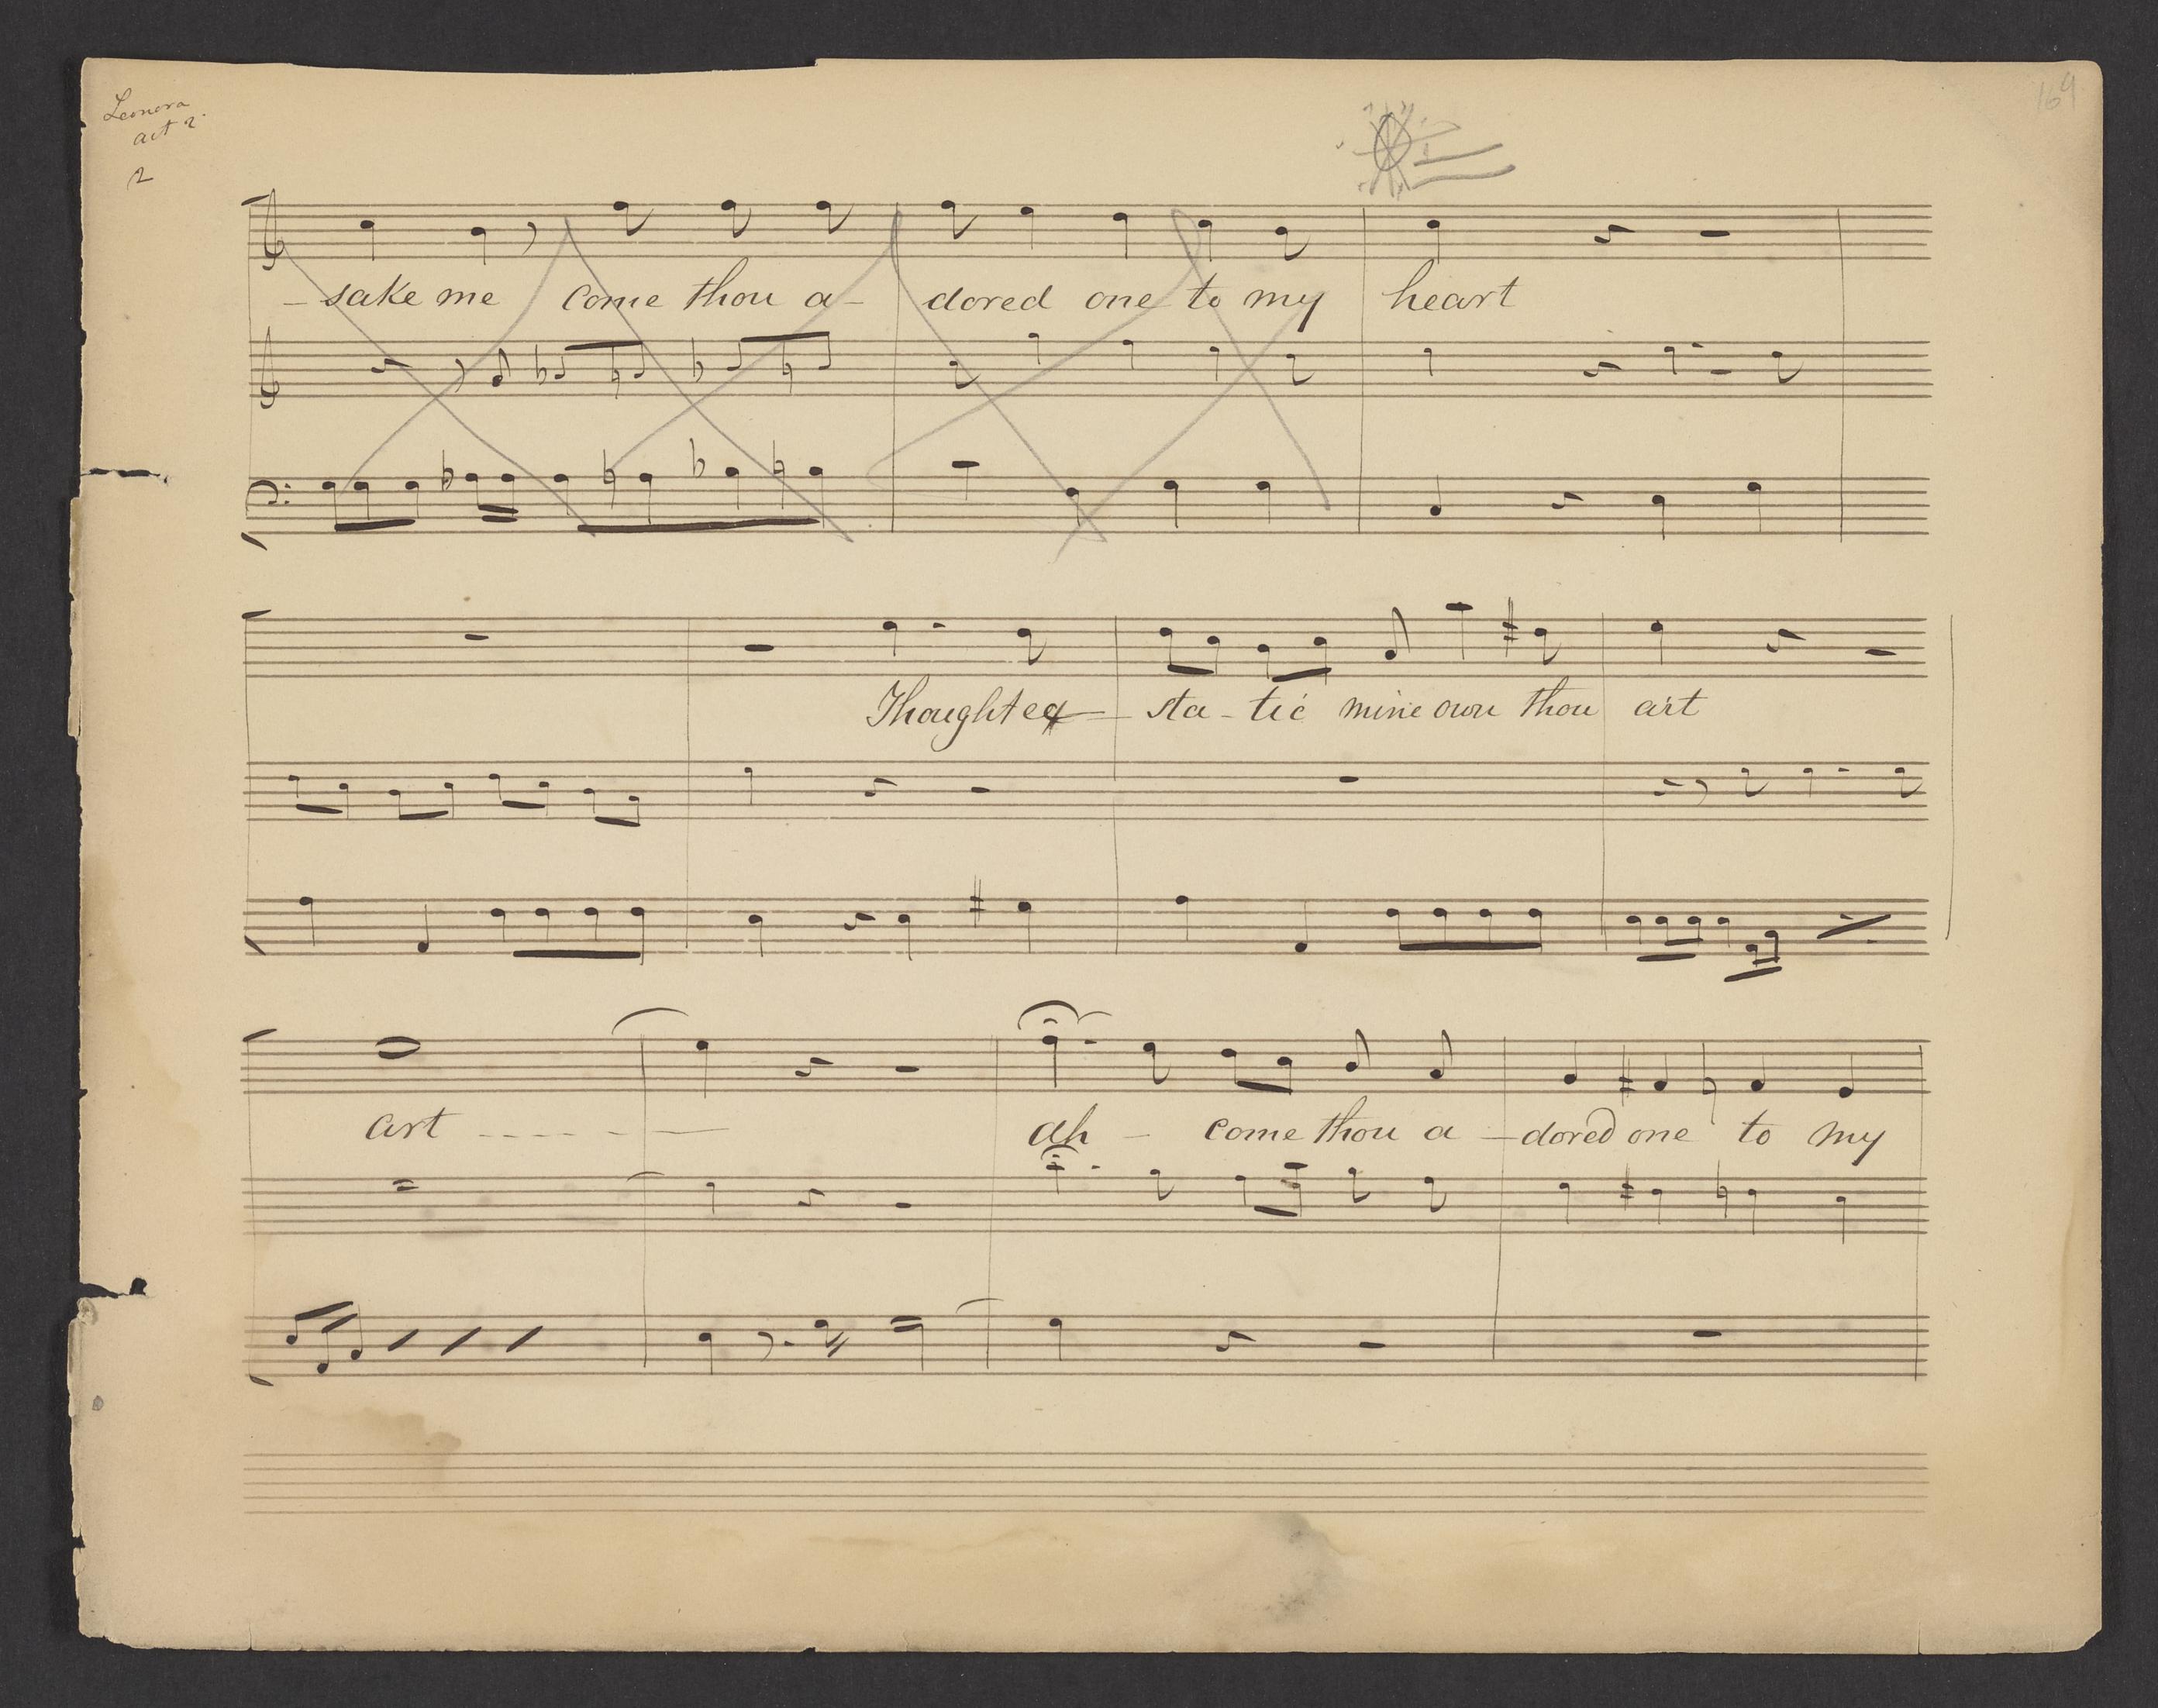 Leonora
act 2.
2
169
- sake me come thou a - dored one to my heart
Thought ec - sta - tic mine own thou art
art - - - - - -
ah - come thou a - dored one to my